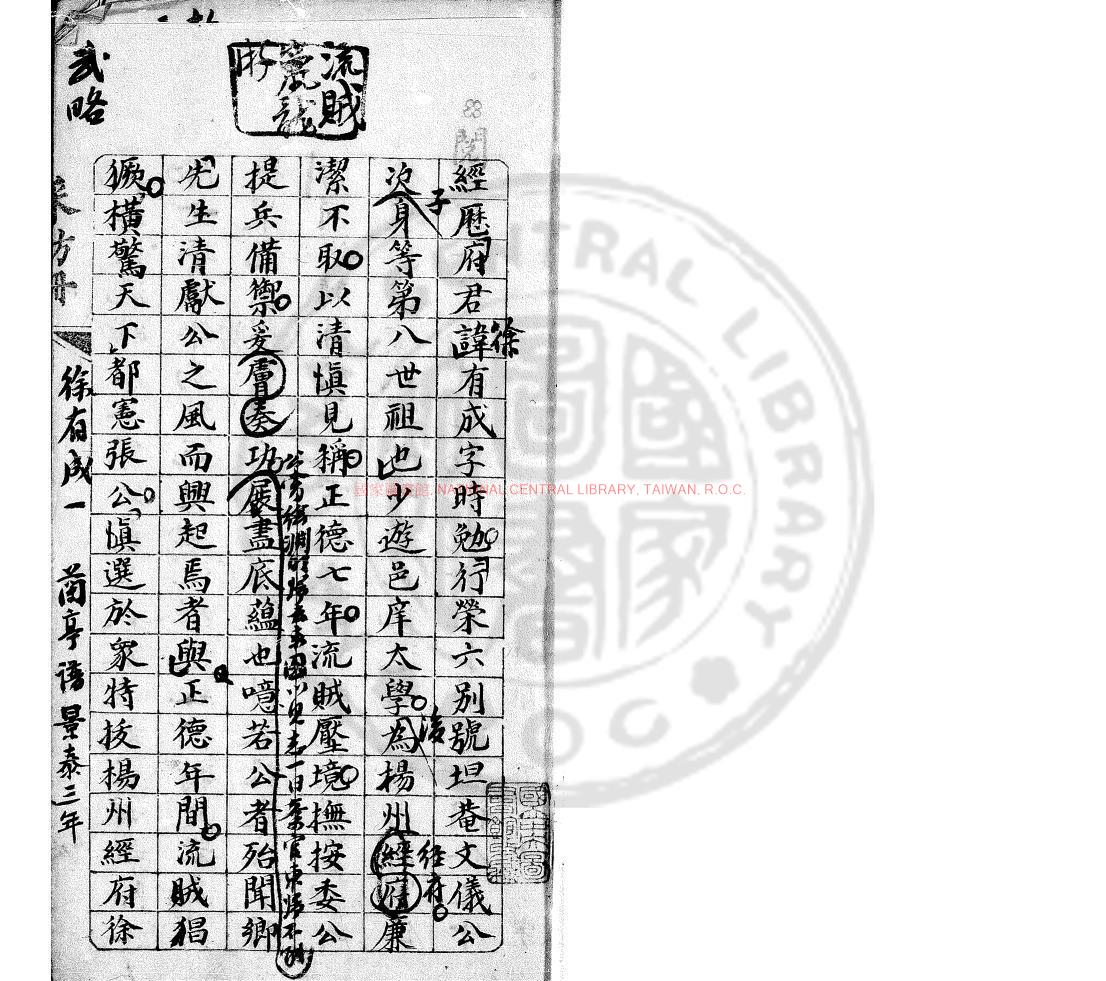 經歷府君諱有成字時勉行榮六別號坦菴文儀公
徐
次身等第八世祖也少遊邑庠太學為楊州經府廉
子
後
經府
潔不取以清慎見稱正德七年流賊壓境撫按委公
提兵備禦爰膚奏功展盡底蘊也噫若公者殆聞鄉
先生清獻公之風而興起焉者與正德年間流賊猖
獗橫驚天下都憲張公慎選於眾特拔楊州經府徐
一日棄官東歸不
流賊
武略
徐有成一
譜 景泰三年
國家圖書館, NATIONAL CENTRAL LIBRARY, TAIWAN, R.O.C.
CENTRAL LIBRARY